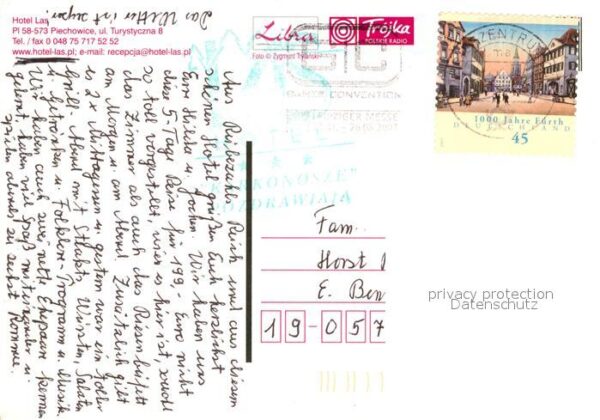 Hotel Las
Pl 58-573 Piechowice, ul. Turystyczna 8
Tel. / fax 0 048 75 717 52 52
www.hotel-las.pl; e-mail: recepcja@hotel-las.pl
Das Wetter ist super.
Libra
Trójka
POLSKIE RADIO
Foto © Zygmunt Trylański
CONVENTION
LEIPZIGER MESSE
ZENTRUM
1000 Jahre Fürth
DEUTSCHLAND
45
"KARKONOSZE"
POZDRAWIAJĄ
Aus Rübezahls Reich und aus diesem
schönen Hotel grüßen Euch herzlichst
Eure Hilda u. Jochen. Wir haben uns
diese 5-Tage Reise für 199,- Euro nicht
so toll vorgestellt, wie es hier ist, sowohl
das Zimmer als auch das Riesenbüfett
am Morgen u. am Abend. Zusätzlich gibt
es 2 x Mittagessen u. gestern war ein toller
Grill-Abend mit Steaks, Würsten, Salaten
u. Getränken u. Folklore-Programm u. Musik.
Wir haben auch zwei nette Ehepaare kennen
gelernt, haben viel Spaß miteinander u.
spielen abends zu sechst Rommee.
Fam.
Horst
E. Ben
19-057
privacy protection
Datenschutz